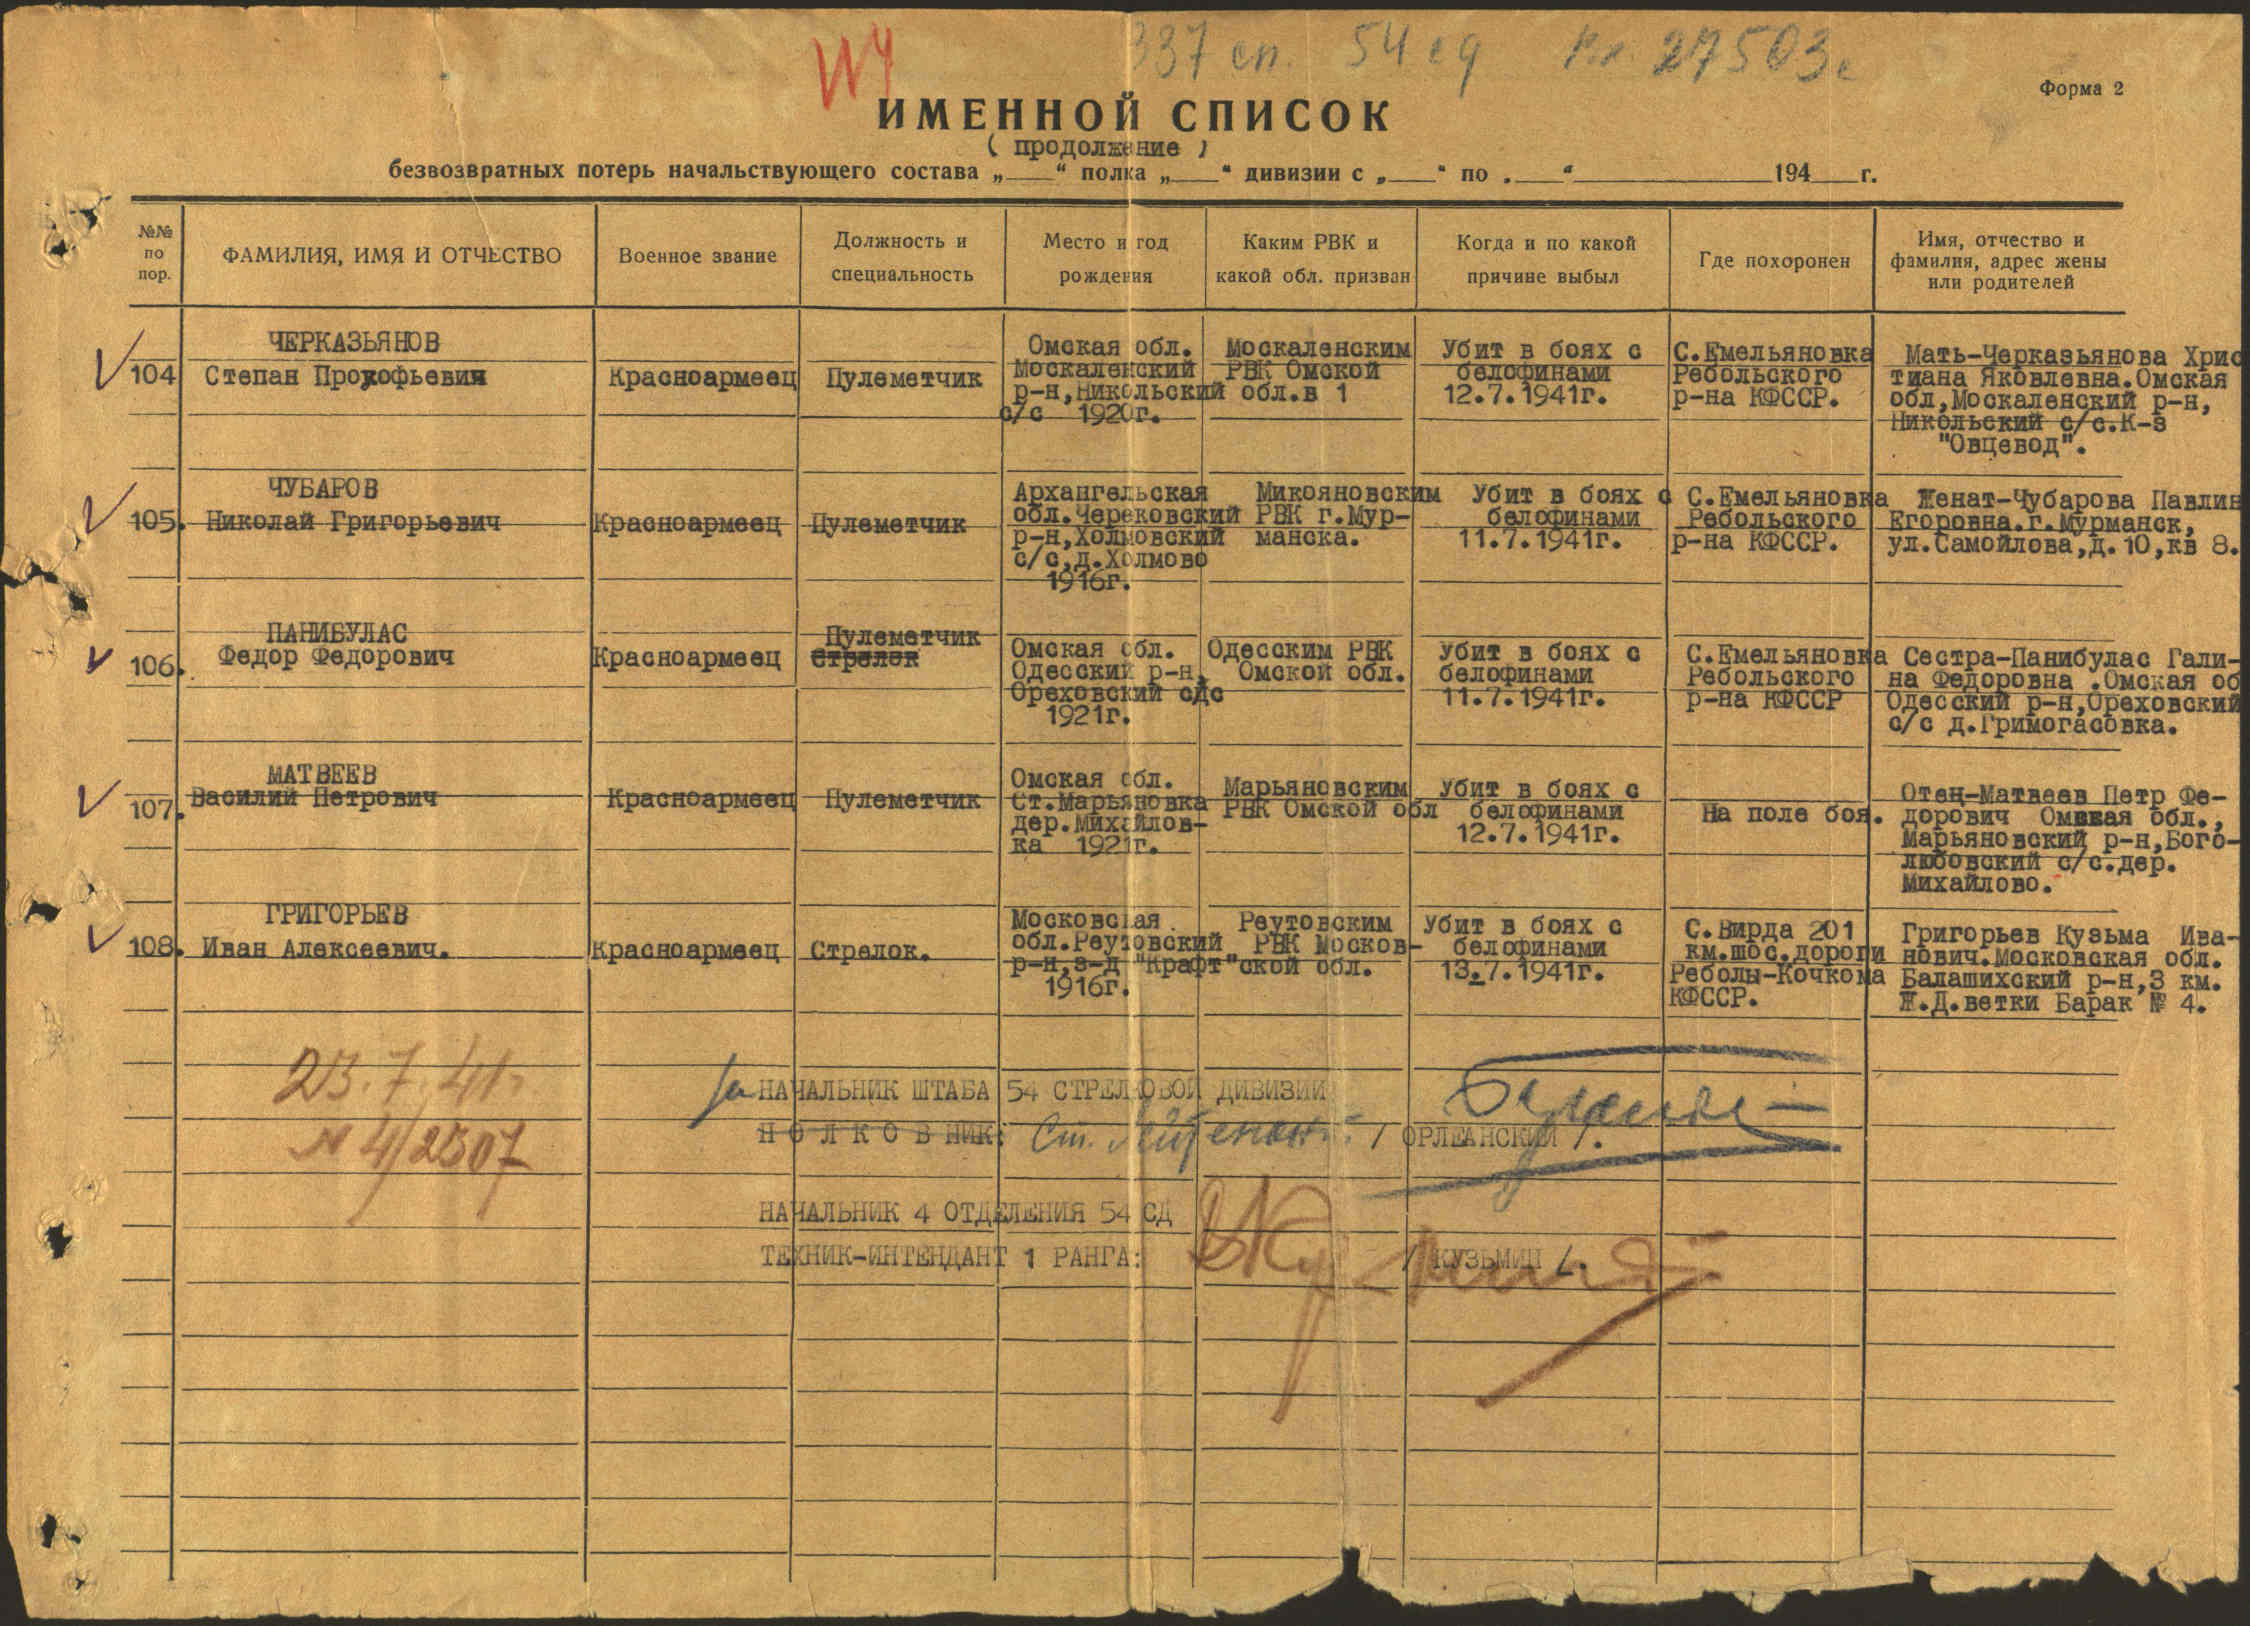 337 сп. 54 сд Вх. 27503с
Форма 2
ИМЕННОЙ СПИСОК
( продолжение )
безвозвратных потерь начальствующего состава „___“ полка „___“ дивизии с „___“ по „___“ ______ 194__г.
№№ по пор.
ФАМИЛИЯ, ИМЯ И ОТЧЕСТВО
Военное звание
Должность и
специальность
Место и год
рождения
Каким РВК и
какой обл. призван
Когда и по какой
причине выбыл
Где похоронен
Имя, отчество и
фамилия, адрес жены
или родителей
104
ЧЕРКАЗЬЯНОВ
Степан Прокофьевич
Красноармеец
Пулеметчик
Омская обл.
Москаленский
р-н,Никольский
с/с 1920г.
Москаленским
РВК Омской
обл.в 1
Убит в боях с
белофинами
12.7.1941г.
С.Емельяновка
Ребольского
р-на КФССР.
Мать-Черказьянова Хрис
тиана Яковлевна.Омская
обл,Москаленский р-н,
Никольский с/с.К-з
"Овцевод".
105.
ЧУБАРОВ
Николай Григорьевич
Красноармеец
Пулеметчик
Архангельская
обл.Черековский
р-н,Холмовский
с/с,д.Холмово
1916г.
Микояновским
РВК г.Мур-
манска.
Убит в боях с
белофинами
11.7.1941г.
С.Емельяновка
Ребольского
р-на КФССР.
Женат-Чубарова Павлин
Егоровна.г.Мурманск,
ул.Самойлова,д.10,кв 8.
106.
ПАНИБУЛАС
Федор Федорович
Красноармеец
Пулеметчик
Стрелок
Омская обл.
Одесский р-н,
Ореховский сдс
1921г.
Одесским РВК
Омской обл.
Убит в боях с
белофинами
11.7.1941г.
С.Емельяновка
Ребольского
р-на КФССР
Сестра-Панибулас Гали-
на Федоровна .Омская об
Одесский р-н,Ореховский
с/с д.Гримогасовка.
107.
МАТВЕЕВ
Василий Петрович
Красноармеец
Пулеметчик
Омская обл.
Ст.Марьяновка
дер.Михайлов-
ка 1921г.
Марьяновским
РВК Омской обл
Убит в боях с
белофинами
12.7.1941г.
На поле боя.
Отец-Матвеев Петр Фе-
дорович Омская обл.,
Марьяновский р-н,Бого-
любовский с/с.дер.
Михайлово.
108.
ГРИГОРЬЕВ
Иван Алексеевич.
Красноармеец
Стрелок.
Московская
обл.Реутовский
р-н,з-д "Крафт"
1916г.
Реутовским
РВК Москов-
ской обл.
Убит в боях с
белофинами
13.7.1941г.
С.Вирда 201
км.шос.дороги
Реболы-Кочкома
КФССР.
Григорьев Кузьма Ива-
нович.Московская обл.
Балашихский р-н,3 км.
Ж.Д.ветки Барак № 4.
23.7.41г.
№ 4/2507
за НАЧАЛЬНИК ШТАБА 54 СТРЕЛКОВОЙ ДИВИЗИИ
ПОЛКОВНИК: Ст. Лейтенант / ОРЛЕАНСКИЙ /.
НАЧАЛЬНИК 4 ОТДЕЛЕНИЯ 54 СД
ТЕХНИК-ИНТЕНДАНТ 1 РАНГА: / КУЗЬМИН /.